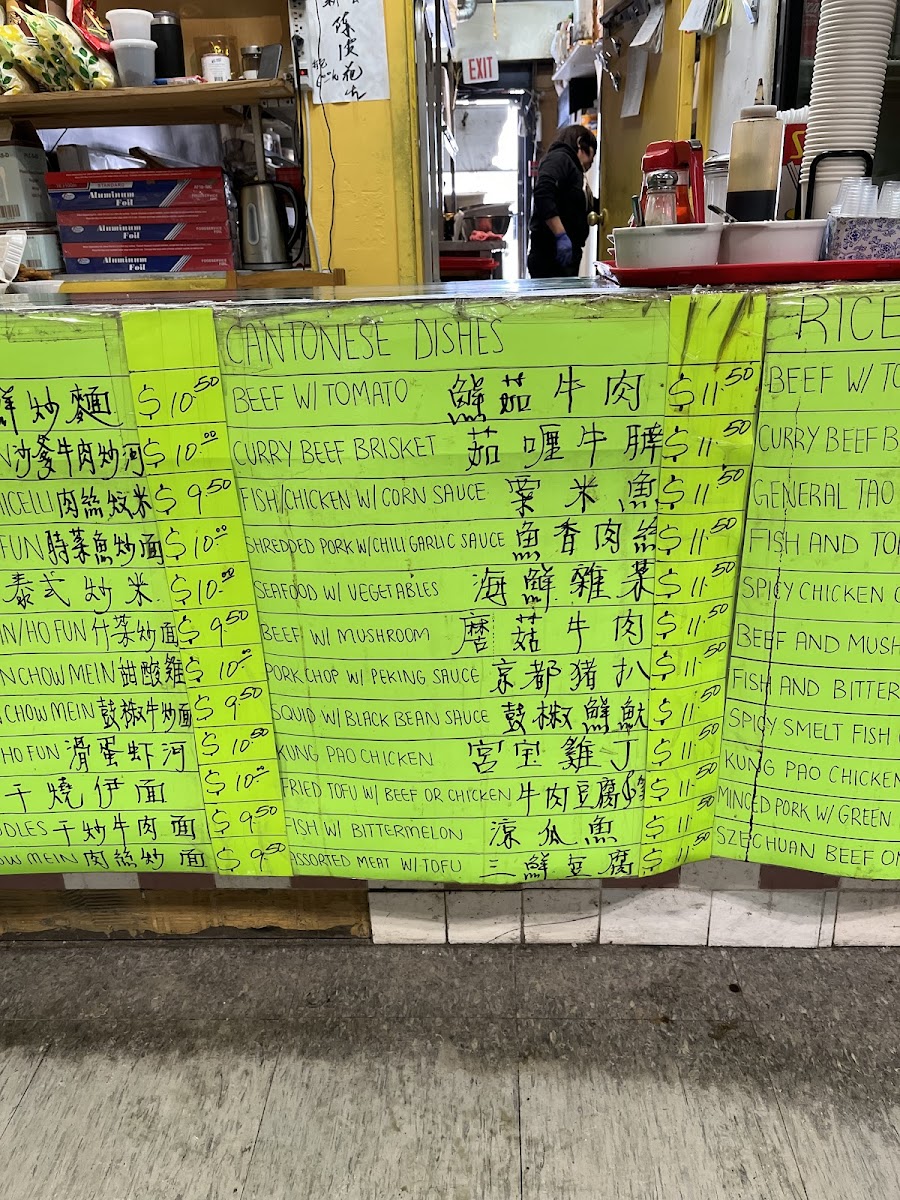 EXIT
陳皮花生
STANDARD
Aluminum Foil
Aluminum Foil
Aluminum Foil
鮮炒麵 $10.50
沙爹牛肉炒河 $10.00
肉絲炆米 $9.50
FUN 時菜魚炒面 $10.00
泰式炒米 $10.00
IN/HO FUN 什菜炒面 $9.50
N CHOW MEIN 甜酸雞 $10.00
CHOW MEIN 鼓椒牛炒面 $9.50
HO FUN 滑蛋虾河 $10.50
干燒伊面 $10.00
干炒牛肉面 $9.50
OW MEIN 肉絲炒面 $9.50
CANTONESE DISHES
BEEF W/ TOMATO 鮮茄牛肉 $11.50
CURRY BEEF BRISKET 茄喱牛腩 $11.50
FISH/CHICKEN W/ CORN SAUCE 粟米魚 $11.50
SHREDDED PORK W/CHILI GARLIC SAUCE 魚香肉絲 $11.50
SEAFOOD W/ VEGETABLES 海鮮雜菜 $11.50
BEEF W/ MUSHROOM 磨菇牛肉 $11.50
PORK CHOP W/ PEKING SAUCE 京都猪扒 $11.50
SQUID W/ BLACK BEAN SAUCE 鼓椒鮮魷 $11.50
KUNG PAO CHICKEN 宮宝雞丁 $11.50
FRIED TOFU W/ BEEF OR CHICKEN 牛肉豆腐 $11.50
FISH W/ BITTERMELON 凉瓜魚 $11.50
ASSORTED MEAT W/TOFU 三鮮豆腐 $11.50
RICE
BEEF W/ TO
CURRY BEEF B
GENERAL TAO
FISH AND TO
SPICY CHICKEN
BEEF AND MUSH
FISH AND BITTER
SPICY SMELT FISH
KUNG PAO CHICKEN
MINCED PORK W/ GREEN
SZECHUAN BEEF OR